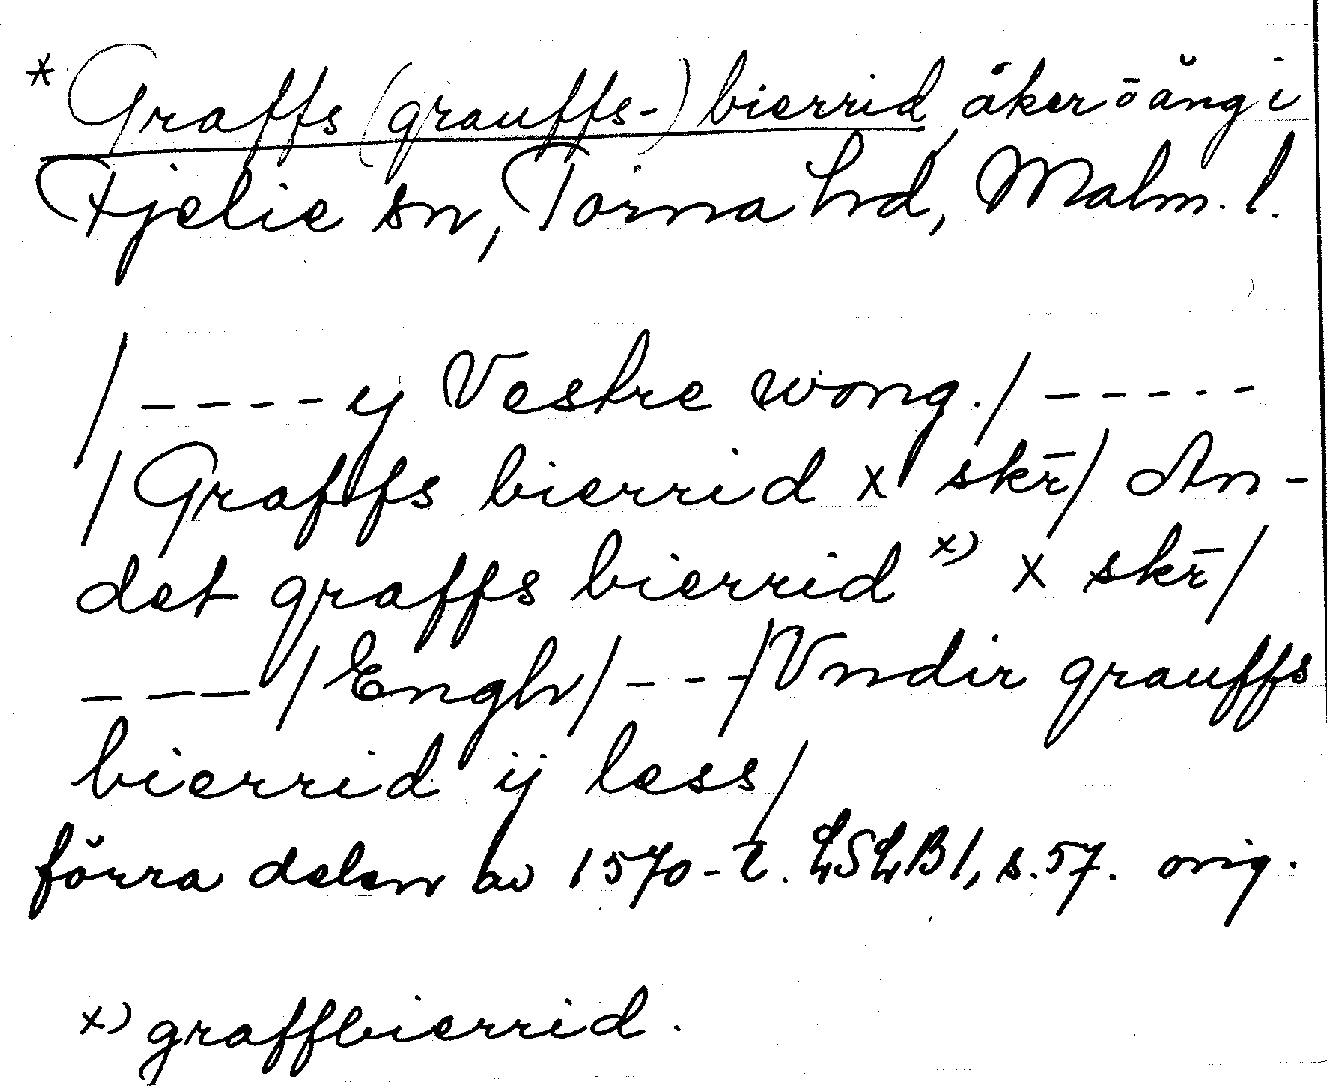 * Graffs (grauffs-) bierrid, åker ō äng i
Fjelie sn, Torna hd, Malm. l.
/ ---- y Vestre wong./ -----
/ Graffs bierrid x skr̄/ An-
det graffs bierrid x) x skr̄/
--- / Engh/ ---/Vndir grauffs
bierrid ij less/
förra delen av 1570-t. LSLB1, s.57. orig.
x) graffbierrid.